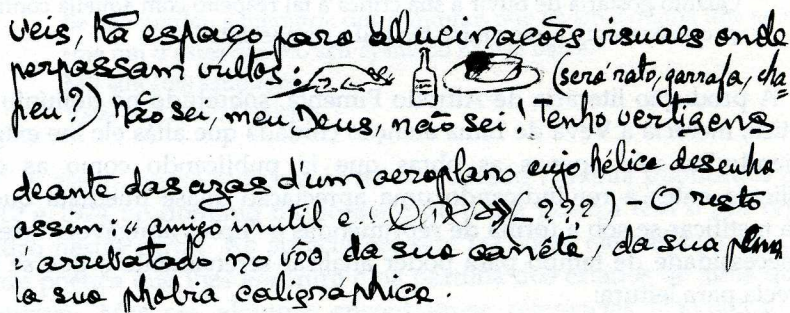 veis, há espaço para allucinações visuaes onde
perpassam vultos: (será rato, garrafa, cha
peu?) não sei, meu Deus, não sei! Tenho vertigens
deante das azas d'um aeroplano cujo hélice desenha
assim: "amigo inutil e (_???) – O resto
é arrebatado no vôo da sua canêta, da sua
la sua phobia caligráphica.